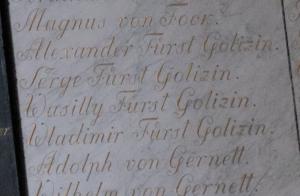 Magnus von Foor.
Alexander Fürst Golizin.
Serge Fürst Golizin.
Wasilly Fürst Golizin.
Wladimir Fürst Golizin.
Adolph von Gernett.
Wilhelm von Gernett.